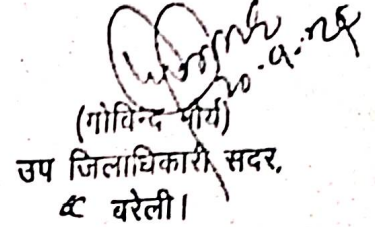 (गोविन्द मौर्य)
उप जिलाधिकारी सदर,
बरेली।